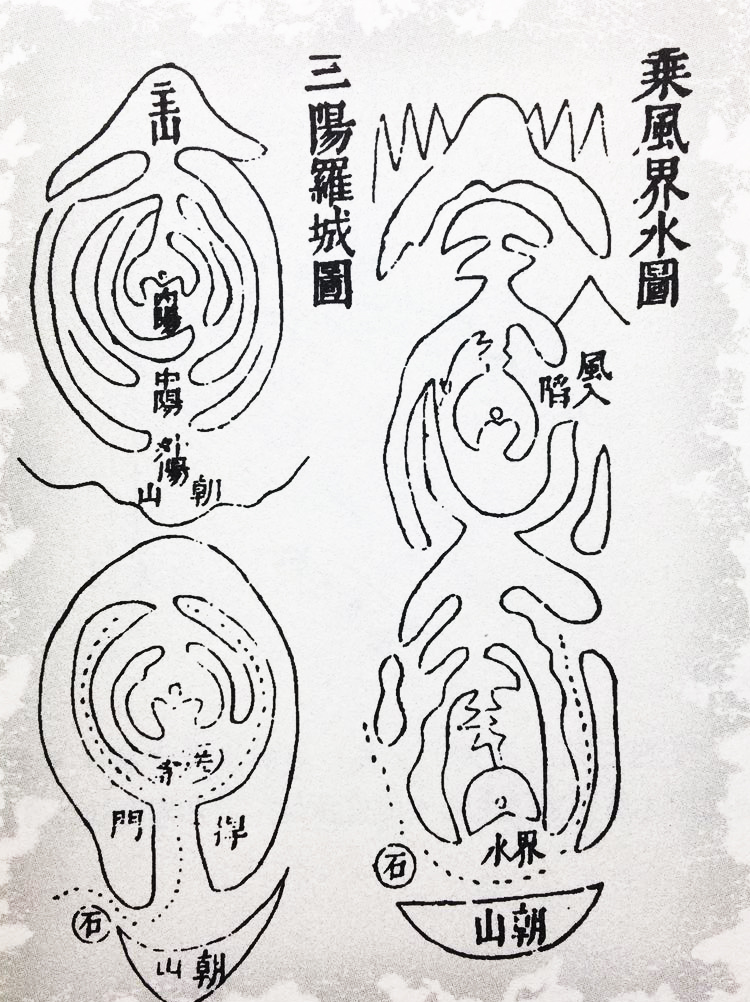 乘風界水圖
風入
陷
界水
石
朝山
三陽羅城圖
主山
內陽
中陽
外陽
朝山
捍門
石
朝山